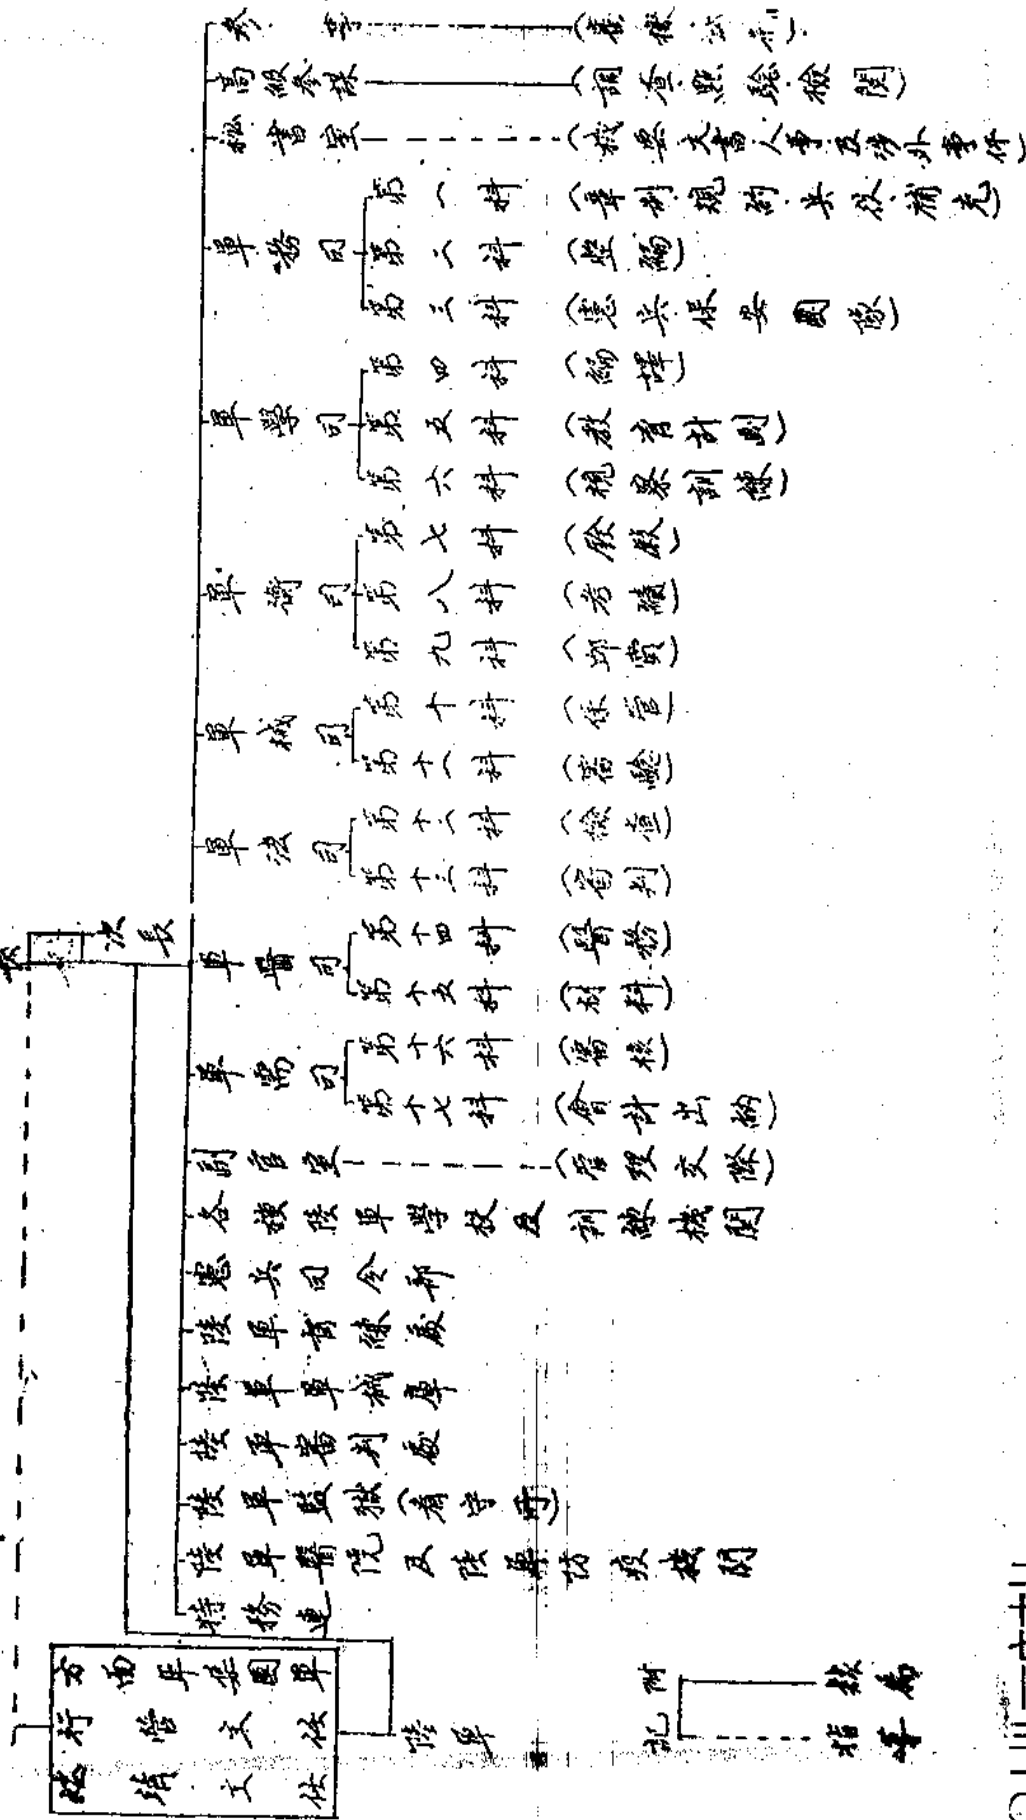 次長
參事
高級參謀 (調查點驗檢閱)
秘書室 (機要文書人事及涉外事件)
軍務司
第一科 (章制規約兵役補充)
第二科 (整編)
第三科 (憲兵保安團隊)
軍學司
第四科 (編譯)
第五科 (教育計劃)
第六科 (視察訓練)
軍衡司
第七科 (銓敘)
第八科 (考績)
第九科 (卹賞)
軍械司
第十科 (保管)
第十一科 (審驗)
軍法司
第十二科 (檢查)
第十三科 (審判)
軍醫司
第十四科 (醫務)
第十五科 (材料)
軍需司
第十六科 (審核)
第十七科 (會計出納)
副官室 (管理交際)
各種陸軍學校及訓練機關
憲兵司令部
陸軍訓練處
陸軍軍械庫
陸軍審判處
陸軍監獄(看守所)
陸軍醫院及陸軍防疫機關
特務連
方面軍集團軍
行營主任
綏靖主任
陸軍
附記
隸屬
指導